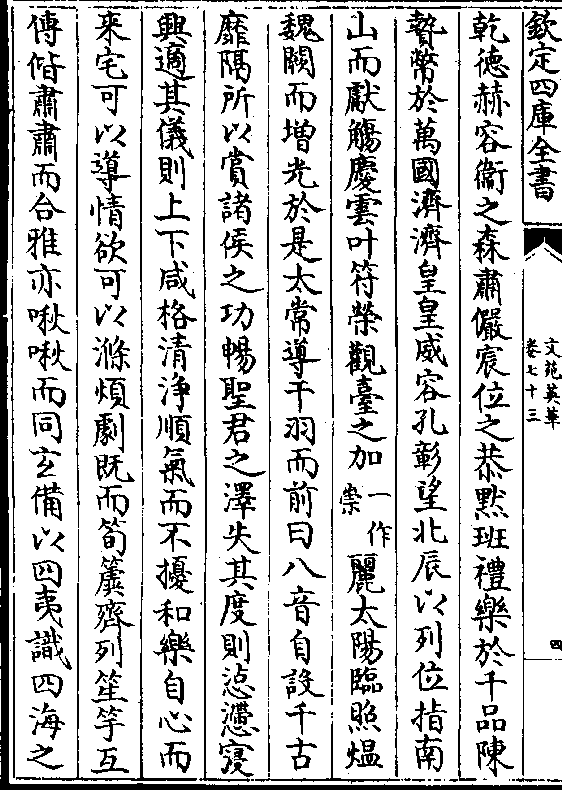 欽定四庫全書
文苑英華
卷七十三
四
乾德赫容衞之森肅儼宸位之恭黙班禮樂於千品陳
贄幣於萬國濟濟皇皇威容孔彰望北辰以列位指南
山而獻觴慶雲叶符榮觀臺之加一作崇麗太陽臨照煴
魏闕而增光於是太常導干羽而前曰八音自設千古
靡隅所以賞諸侯之功暢聖君之澤失其度則惉懘寖
興適其儀則上下咸格清浄順氣而不擾和樂自心而
來宅可以導情欲可以滌煩劇既而筍簴齊列笙竽互
傳偕肅肅而合雅亦啾啾而同玄備以四夷識四海之